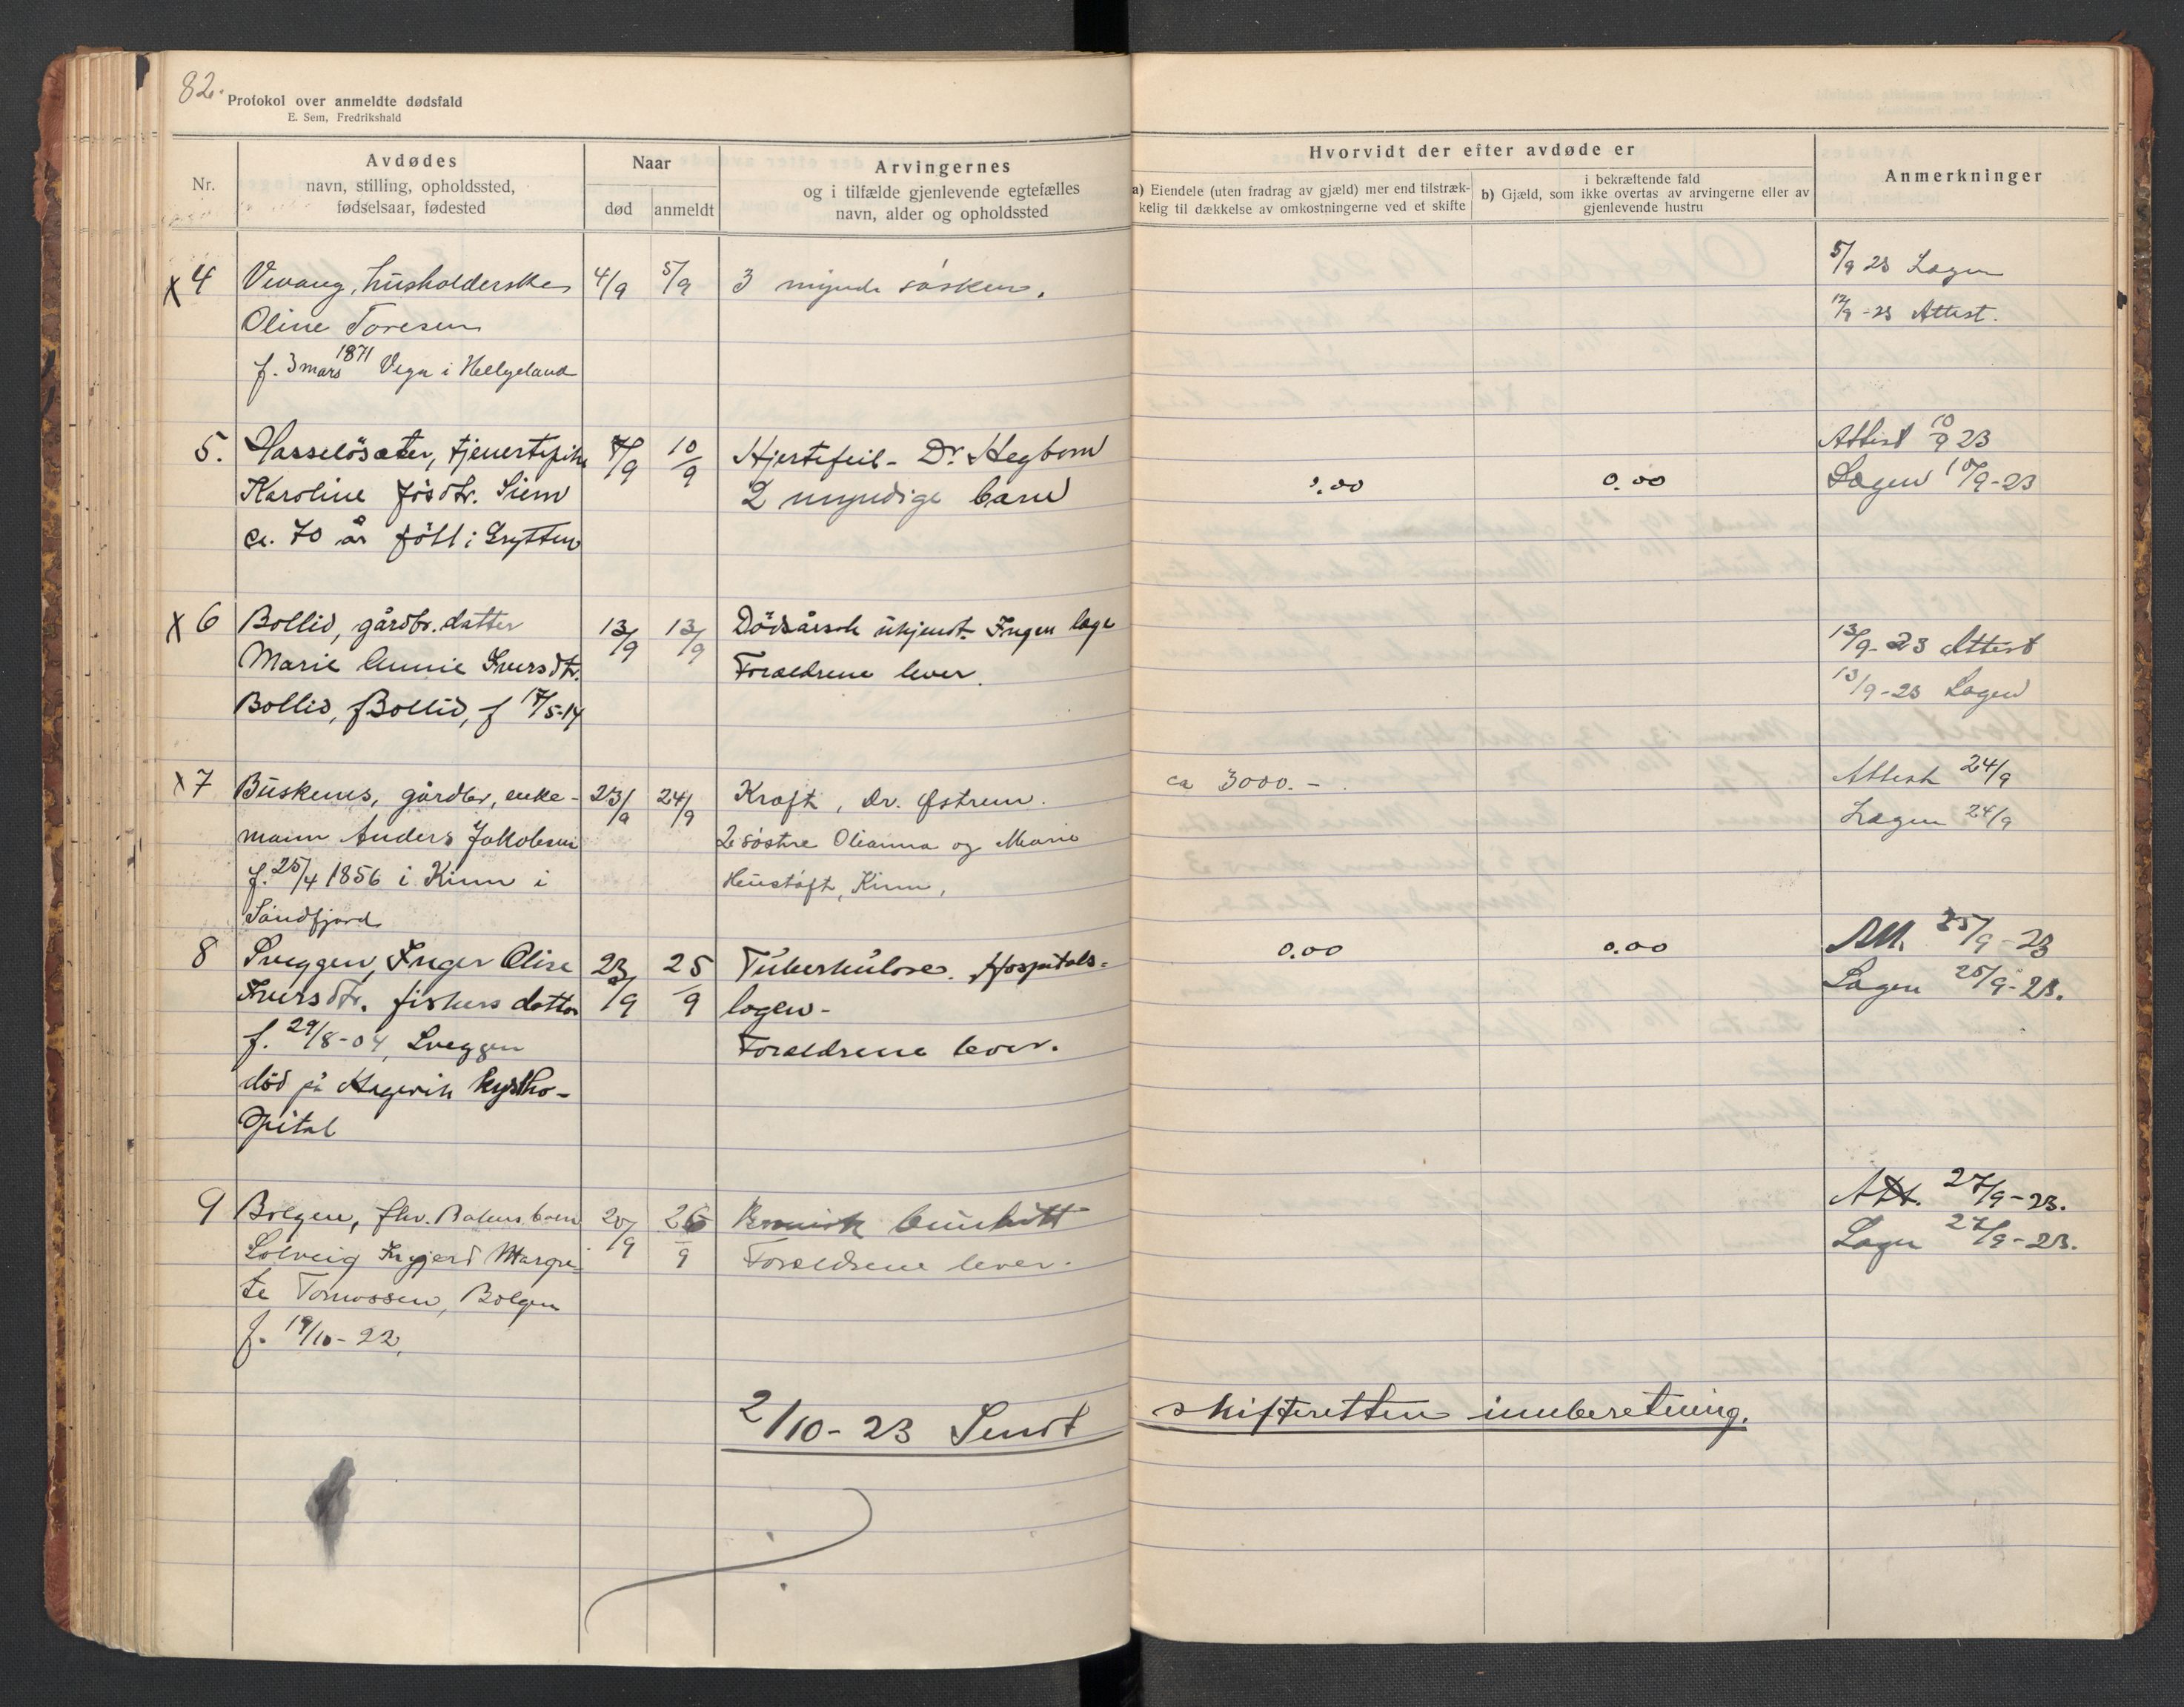 82.
Protokol over anmeldte dødsfald
E. Sem, Fredrikshald
Nr.
Avdødes
navn, stilling, opholdssted,
fødselsaar, fødested
Naar
død
anmeldt
Arvingernes
og i tilfælde gjenlevende egtefælles
navn, alder og opholdssted
Hvorvidt der efter avdøde er
a) Eiendele (uten fradrag av gjæld) mer end tilstræk-
kelig til dækkelse av omkostningerne ved et skifte
i bekræftende fald
b) Gjæld, som ikke overtas av arvingerne eller av
gjenlevende hustru
Anmerkninger
x 4 Vevang, husholderske 4/9 5/9 3 mynde søsken. 5/9 23 Lægen
Oline Toresen 12/9-23 Attest.
f. 3 mars 1871 Vega i Helgeland
5. Hasselösæter, tjenertpike 7/9 10/9 Hjertefeil - Dr. Hegbom Attest 10/9 23
Karoline Jösdtr. Siem 2 myndige barn 0.00 0.00 Lægen 10/9-23
ca. 70 år född i Grytten
x 6 Bollid, gårdbr. datter 13/9 13/9 Dödsårsak ukjendt. Ingen læge 13/9-23 Attest
Marie Annie Iversdtr. Forældrene lever. 13/9-23 Lægen
Bollid, f Bollid, f 17/5-14
x 7 Buskenes, gårdbr, enke- 23/9 24/9 Kræft, Dr. Østrem. ca 3000.- Attest 24/9
mann Anders Jakobsen 2 søstre Olianna og Marie Lægen 24/9
f. 25/4 1856 i Kinn i Kinn,
Søndfjord
8 Sveggen, Inger Elise 23/9 25/9 Tuberkulose. Hospitals- 0.00 0.00 Att. 25/9-23
Iversdtr. fiskers datter lægen - Lægen 25/9-23.
f. 29/8-04, Sveggen Forældrene lever.
död på Hagevik kystho-
spital
9 Bolgen, fhv. barn 20/9 26/9 Forældrene lever. Att. 27/9-23.
Solveig Ingjerd Margre- Lægen 27/9-23.
te Tomassen, Bolgen
f. 19/10-22,
2/10-23 Sendt skifteretten innberetning.